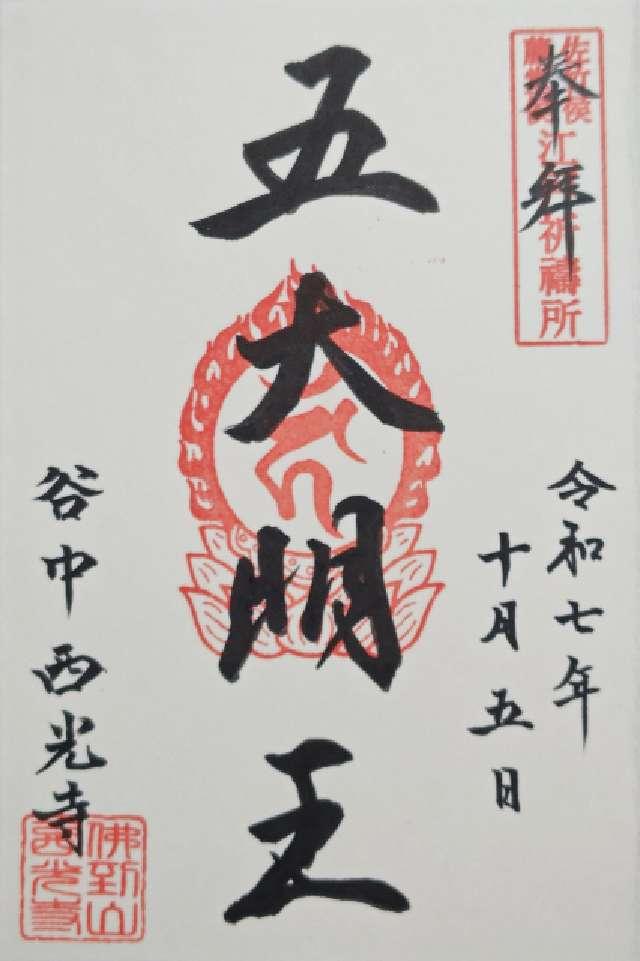 奉拝
江戸祈禱所
令和七年
十月五日
五大明王
谷中西光寺
佛到山
西光寺